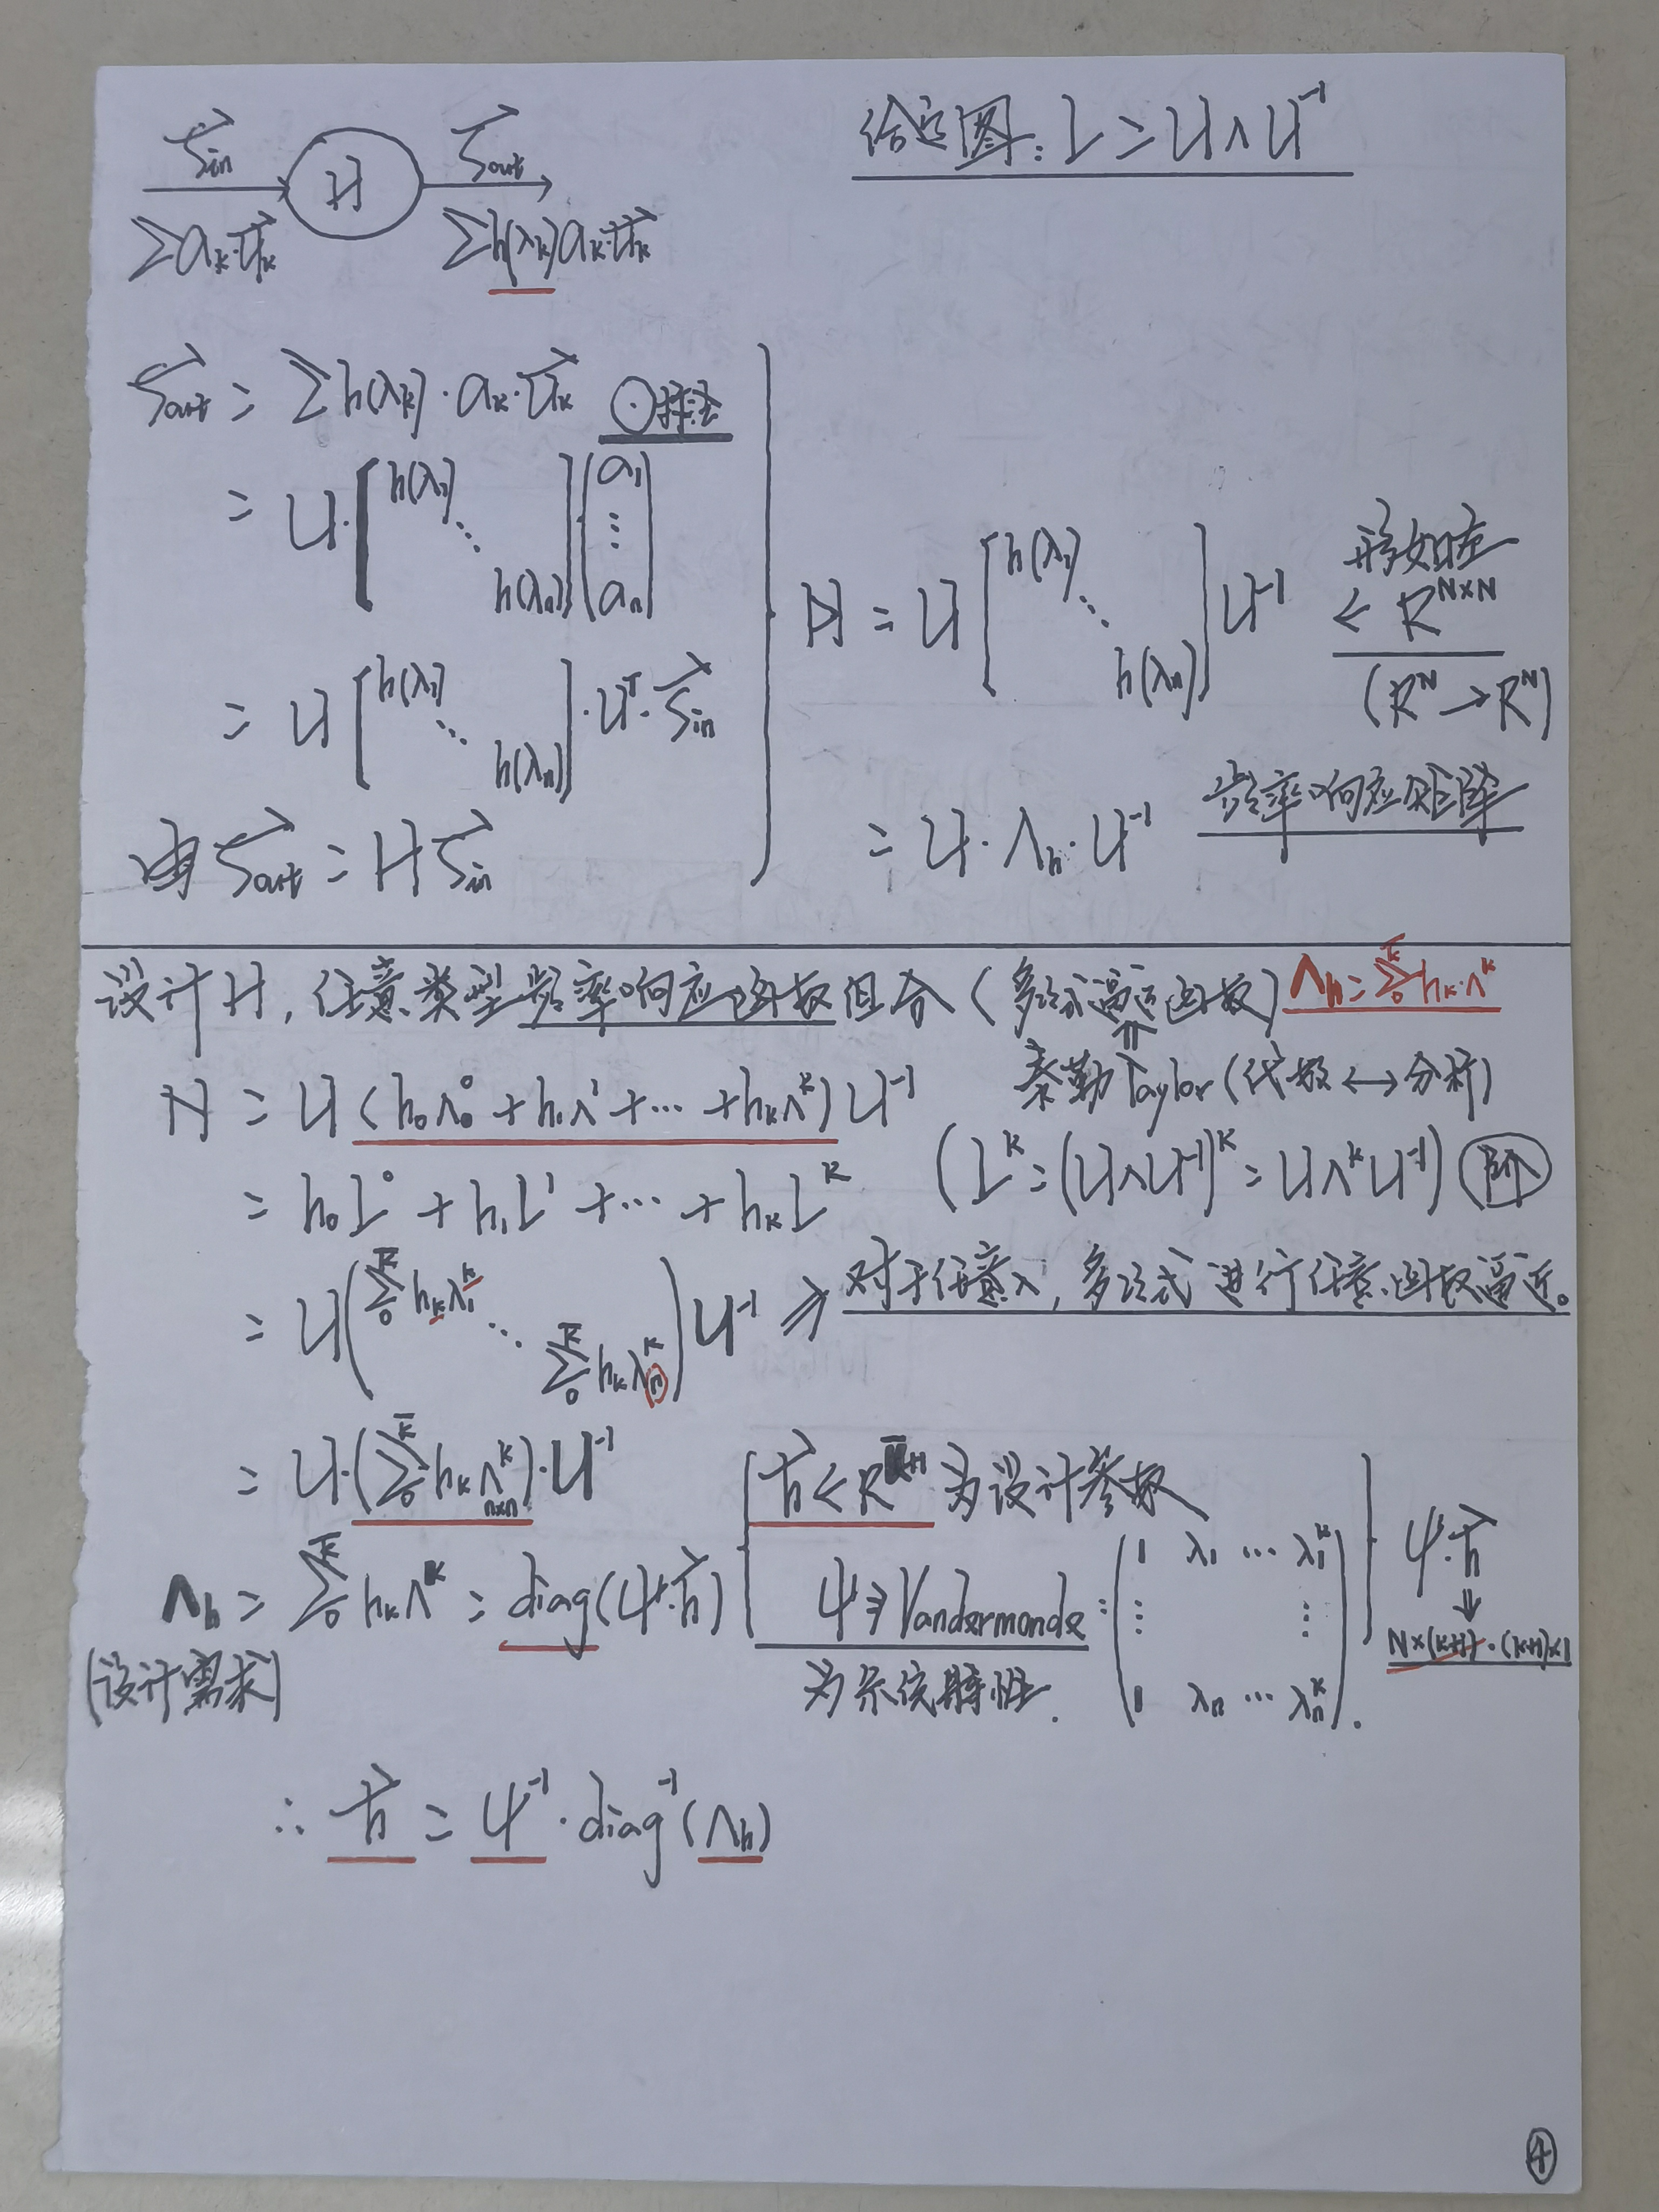 S⃗in → H → S⃗out
Σ aₖ·u⃗ₖ   Σ h(λₖ)aₖ·u⃗ₖ
给定图: L = UΛU⁻¹
S⃗out = Σ h(λₖ)·aₖ·u⃗ₖ
= U·[h(λ₁) ⋱ h(λn)]·[a₁ ⋮ an]
= U[h(λ₁) ⋱ h(λn)]·Uᵀ·S⃗in
由 S⃗out = H S⃗in
H = U[h(λ₁) ⋱ h(λn)]U⁻¹
形如左
∈ R^{N×N}
(Rᴺ → Rᴺ)
= U·Λh·U⁻¹ 频率响应矩阵
设计H, 任意类型频率响应函数组合 (多项式逼近函数) Λh = Σ₀ᴷ hₖ·Λᵏ
泰勒 Taylor (代数 ↔ 分析)
H = U(h₀Λ⁰ + h₁Λ¹ + ⋯ + hₖΛᴷ)U⁻¹
= h₀L⁰ + h₁L¹ + ⋯ + hₖLᴷ (Lᴷ = (UΛU⁻¹)ᴷ = UΛᴷU⁻¹)
= U(Σ₀ᴷ hₖλ₁ᵏ ⋱ Σ₀ᴷ hₖλnᵏ)U⁻¹ ⇒ 对于任意λ, 多项式进行任意函数逼近。
= U·(Σ₀ᴷ hₖΛᵏn×n)·U⁻¹
Λh = Σ₀ᴷ hₖΛᵏ = diag(Ψ·h⃗)
(设计需求)
h⃗ ∈ R^{K+1} 为设计参数
Ψ ⇒ Vandermonde: (1 λ₁ ⋯ λ₁ᴷ ⋮ ⋮ 1 λn ⋯ λnᴷ).
为系统特性.
Ψ·h⃗
⇓
N×(K+1)·(K+1)×1
∴ h⃗ = Ψ⁻¹·diag⁻¹(Λh)
4